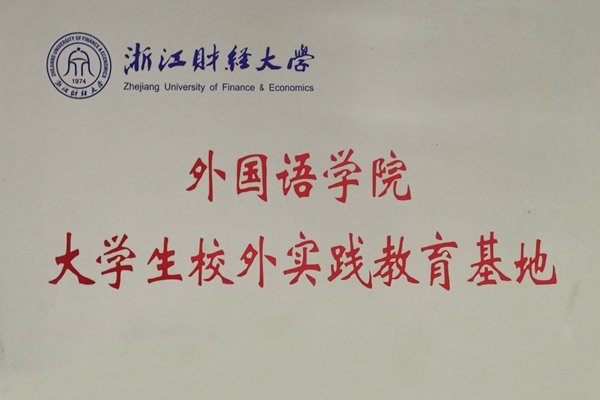 ZHEJIANG UNIVERSITY OF FINANCE & ECONOMICS
1974
浙江财经大学
浙江财经大学
Zhejiang University of Finance & Economics
外国语学院
大学生校外实践教育基地